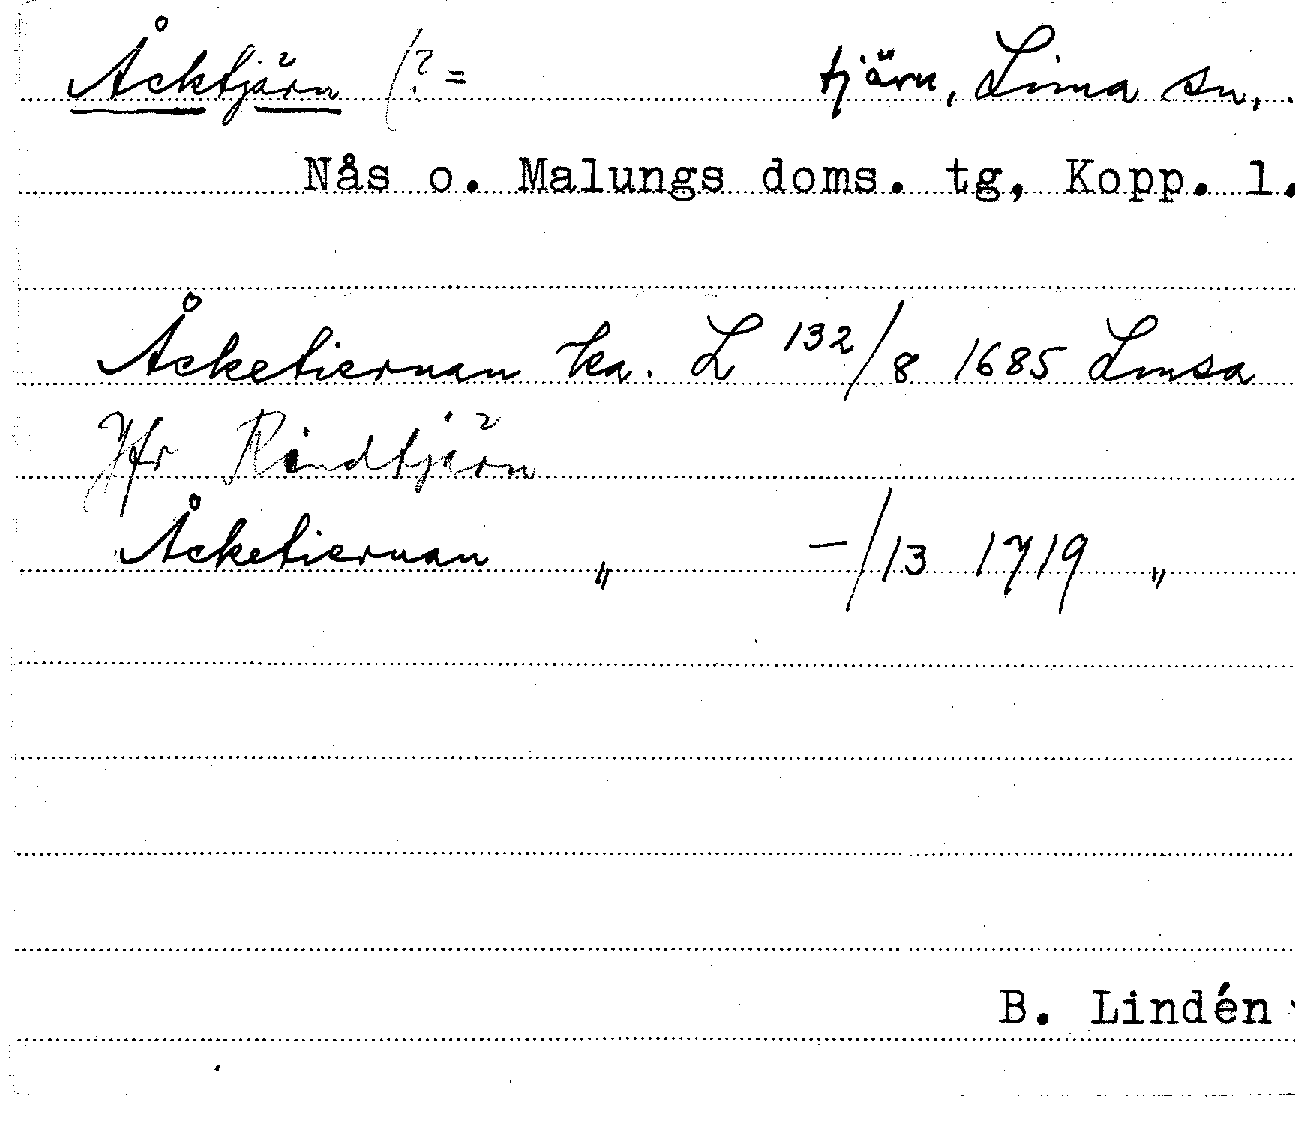 Åcktjärn (? = tjärn, Lima sn,
Nås o. Malungs doms. tg, Kopp. l.
Åcketiernan ka. L 132/8 1685 Lmsa
Jfr Rindtjärn
Åcketiernan " -/13 1719 "
B. Lindén